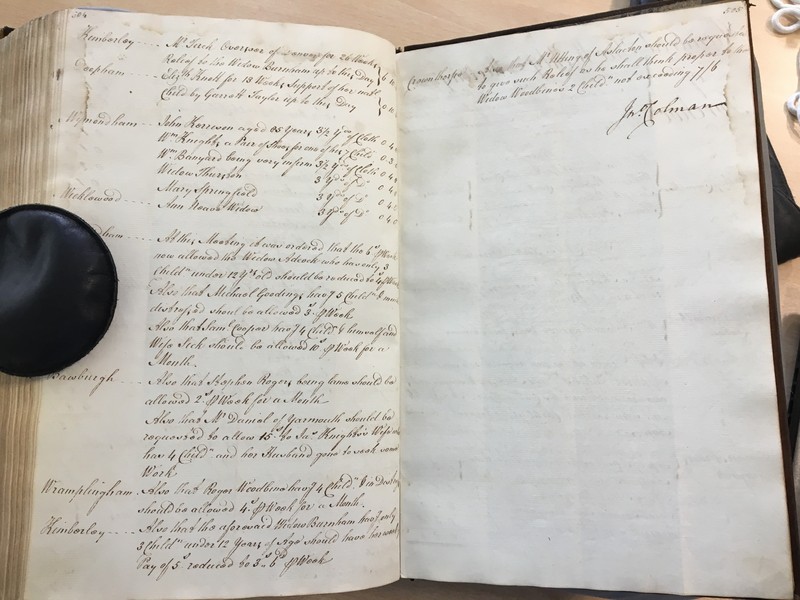 504
Kimberley Mr. Tirck Overseer of for 26 Weeks
Relief to Wid. Widow Burnham up to this Day 6
Deopham Elizth. for 18 Weeks Support of her
Child by Garrott Taylor up to this Day
Wymondham John aged 85 Years 3½ Yds. of Cloth 0.4
Wm. Knights a Pair of Shoes for one of his 7 Childn. 0.3
Wm. Banyard being very infirm 3½ Yds. of Cloth 0.4
Widow Thurston 3 Yds. of Do. 0.4
Mary Springfield 3 Yds. of Do. 0.4
Wicklewood Ann Neave Widow 3 Yds. of Do. 0.4.0
ham At this Meeting it was ordered that the 6s. ℔ Week
now allowed the Widow Adcock who has only 3
Childn. under 12 Yrs. old should be reduced to 4s. ℔ Week
Also that Michael Gooding havg. 5 Childn. &
distressed shoul be allowed 3s. ℔ Week
Also that Saml. Cooper havg. 4 Childn. & himself and
Wife Sick should be allowed 10s. ℔ Week for a
Month.
Bawburgh Also that Stephen Roger, being lame should be
allowed 2s. ℔ Week for a Month
Also that Mr. Daniel of Yarmouth should be
requested to allow 15s. to Jas. Knights's Wife who
has 4 Childn. and her Husband gone to seek some
Work
Wramplingham Also that Roger Woodbine havg. 4 Childn. & in Distress
should be allowed 4s. ℔ Week for a Month.
Kimberley Also that the aforesaid Widow Burnham havg. only
3 Childn. under 12 Years of Age should have her
Pay of 5s. reduced to 3s. 6d. ℔ Week
505
Crownthorpe Also that Mr. of should be requested
to give such Relief as he shall think proper to the
Widow Woodbines 2 Childn. not exceeding 7/6
Jno. Colman